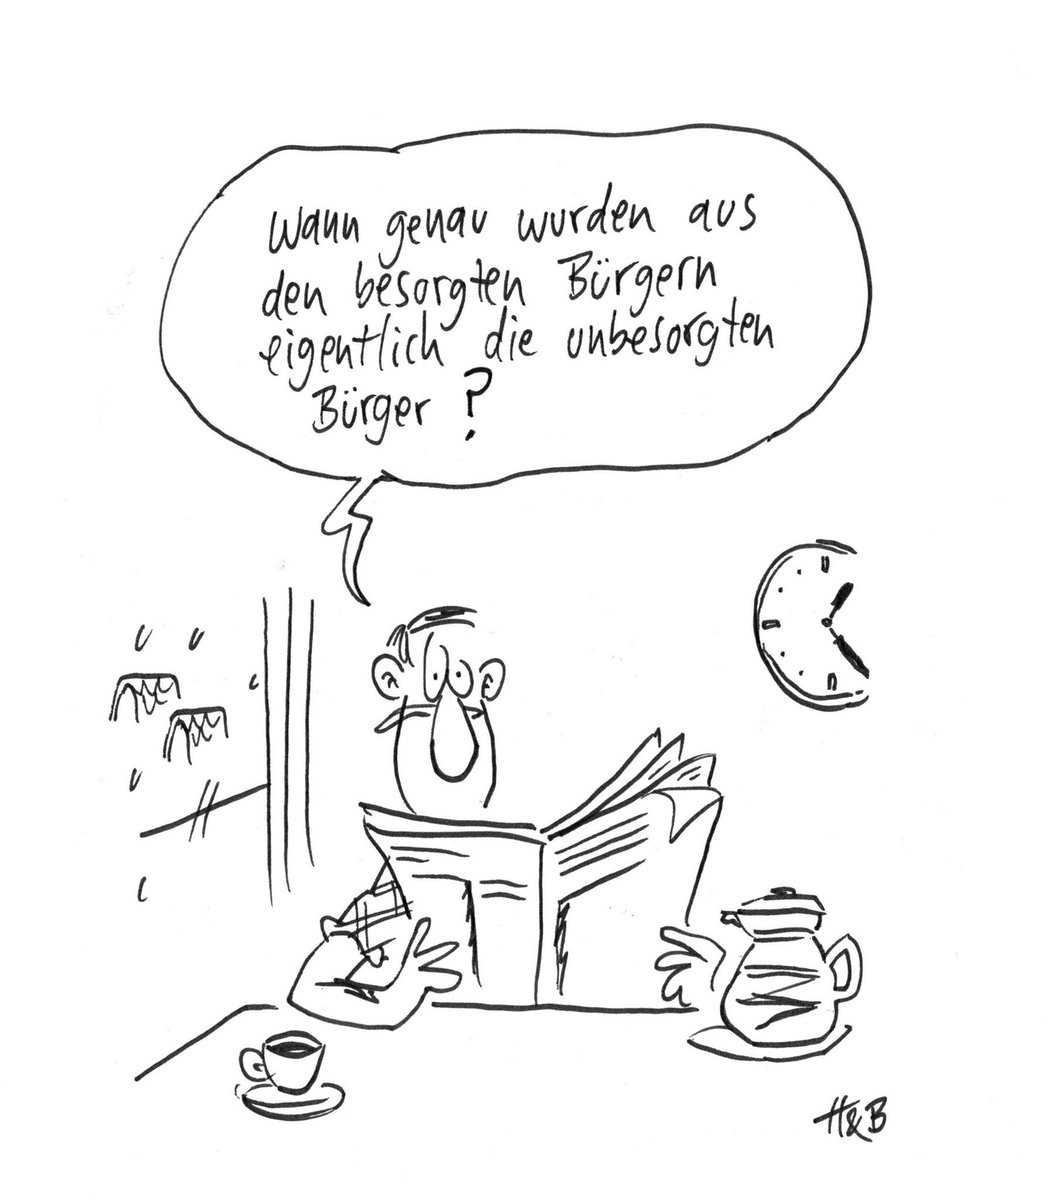 Wann genau wurden aus
den besorgten Bürgern
eigentlich die unbesorgten
Bürger ?
H&B